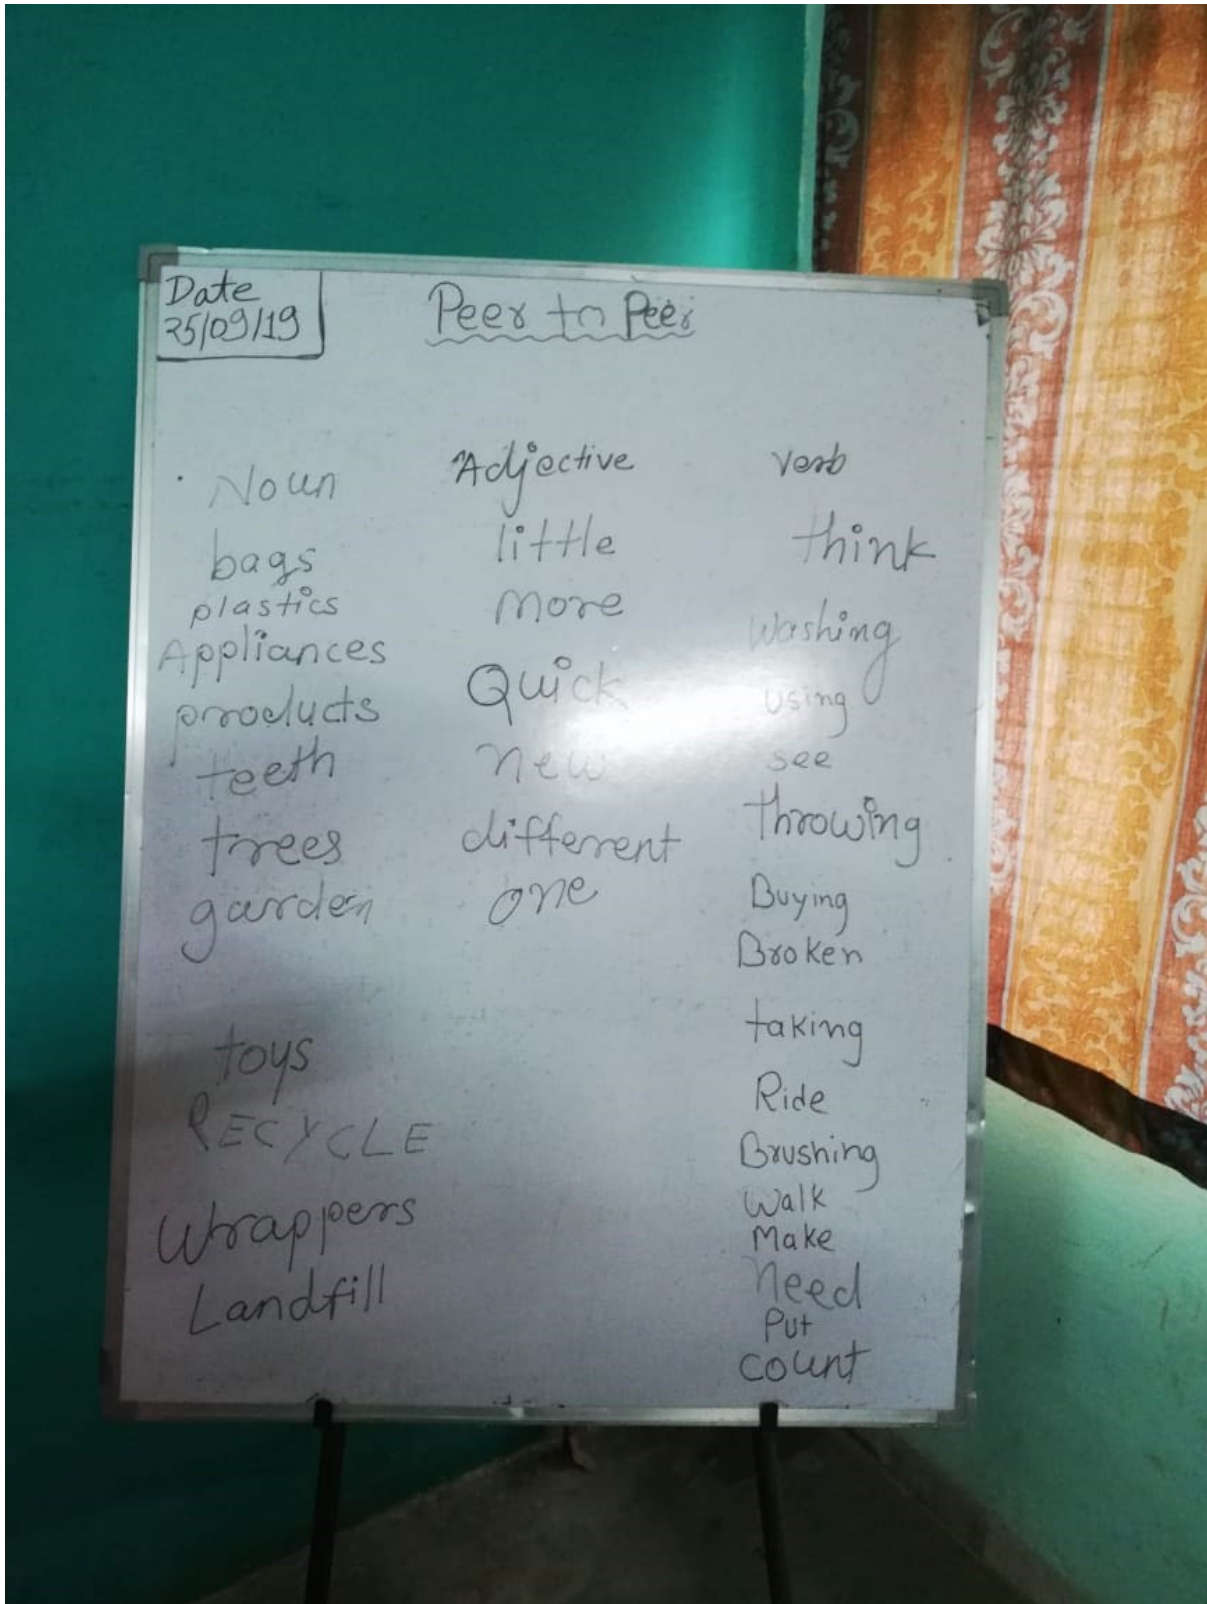 Date
25/09/19
Peer to Peer
Noun
bags
plastics
Appliances
products
teeth
trees
garden
toys
RECYCLE
Wrappers
Landfill
Adjective
little
more
Quick
new
different
one
Verb
think
Washing
using
see
throwing
Buying
Broken
taking
Ride
Brushing
Walk
Make
need
Put
count